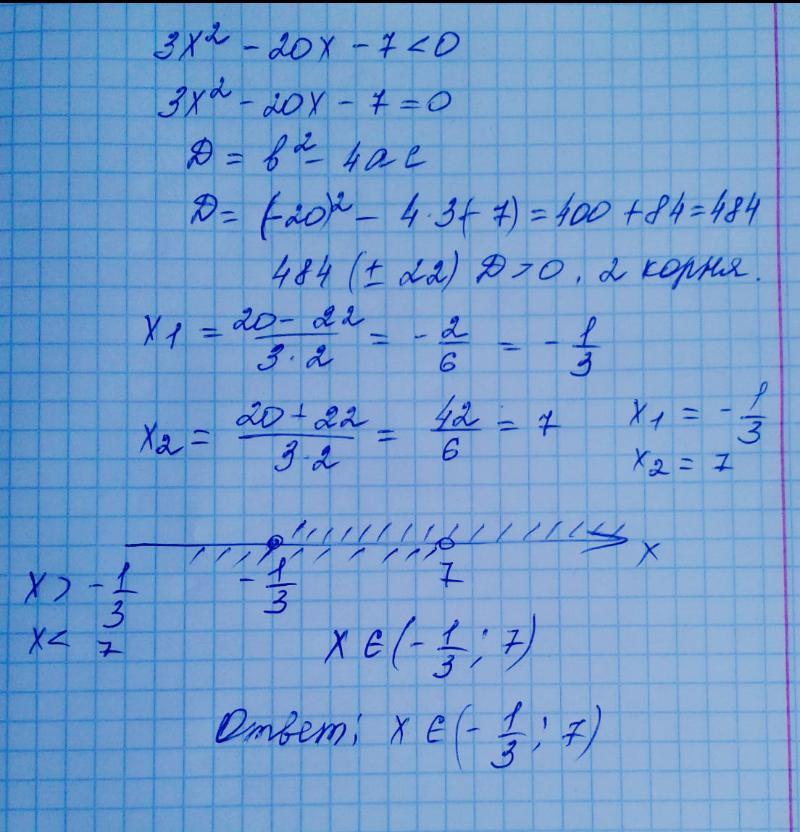 3x² - 20x - 7 < 0
3x² - 20x - 7 = 0
D = b² - 4ac
D = (-20)² - 4·3(-7) = 400 + 84 = 484
484 (± 22) D > 0, 2 корня.
x1 = 20 - 22 / 3·2 = - 2/6 = - 1/3
x2 = 20 + 22 / 3·2 = 42/6 = 7
x1 = - 1/3
x2 = 7
- 1/3 7 x
x > - 1/3
x < 7
x ∈ (- 1/3; 7)
Ответ: x ∈ (- 1/3; 7)